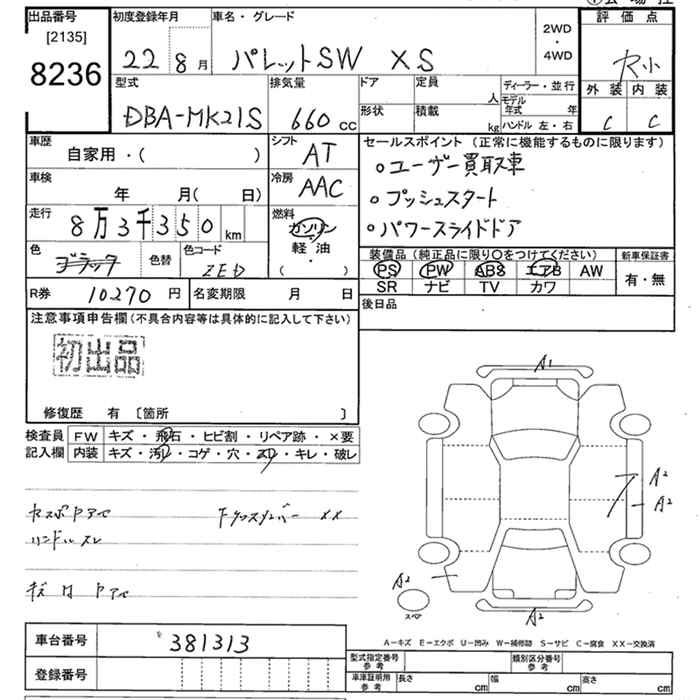 出品番号
[2135]
8236
初度登録年月
22 8月
車名・グレード
パレットSW XS
2WD
・
4WD
評価点
外装 内装
C C
型式
DBA-MK21S
排気量
660 cc
ドア
定員
人
形状
積載
kg
ディーラー・並行
モデル年式 年
ハンドル 左・右
車歴
自家用・( )
シフト
AT
車検
年 月( 日)
冷房
AAC
走行
8万3千350 km
燃料
ガソリン
・
軽油
( )
色
ブラック
色替
色コード
ZED
R券 10270 円
名変期限 月 日
セールスポイント (正常に機能するものに限ります)
○ユーザー買取車
○プッシュスタート
○パワースライドドア
装備品 (純正品に限り○をつけてください)
PS PW ABS エアB AW
SR ナビ TV カワ
新車保証書
有・無
後日品
注意事項申告欄 (不具合内容等は具体的に記入して下さい)
初出品
修復歴 有 〔箇所 〕
検査員記入欄
FW キズ・飛石・ヒビ割・リペア跡・×要
内装 キズ・汚レ・コゲ・穴・スレ・キレ・破レ
ハンドルスレ
A1
A2
A2
A2
A2
スペア
A-キズ E-エクボ U-凹み W-補修跡 S-サビ C-腐食 XX-交換済
車台番号 381313
登録番号
型式指定番号 参考
類別区分番号 参考
車庫証明用 参考
長さ cm 幅 cm 高さ cm